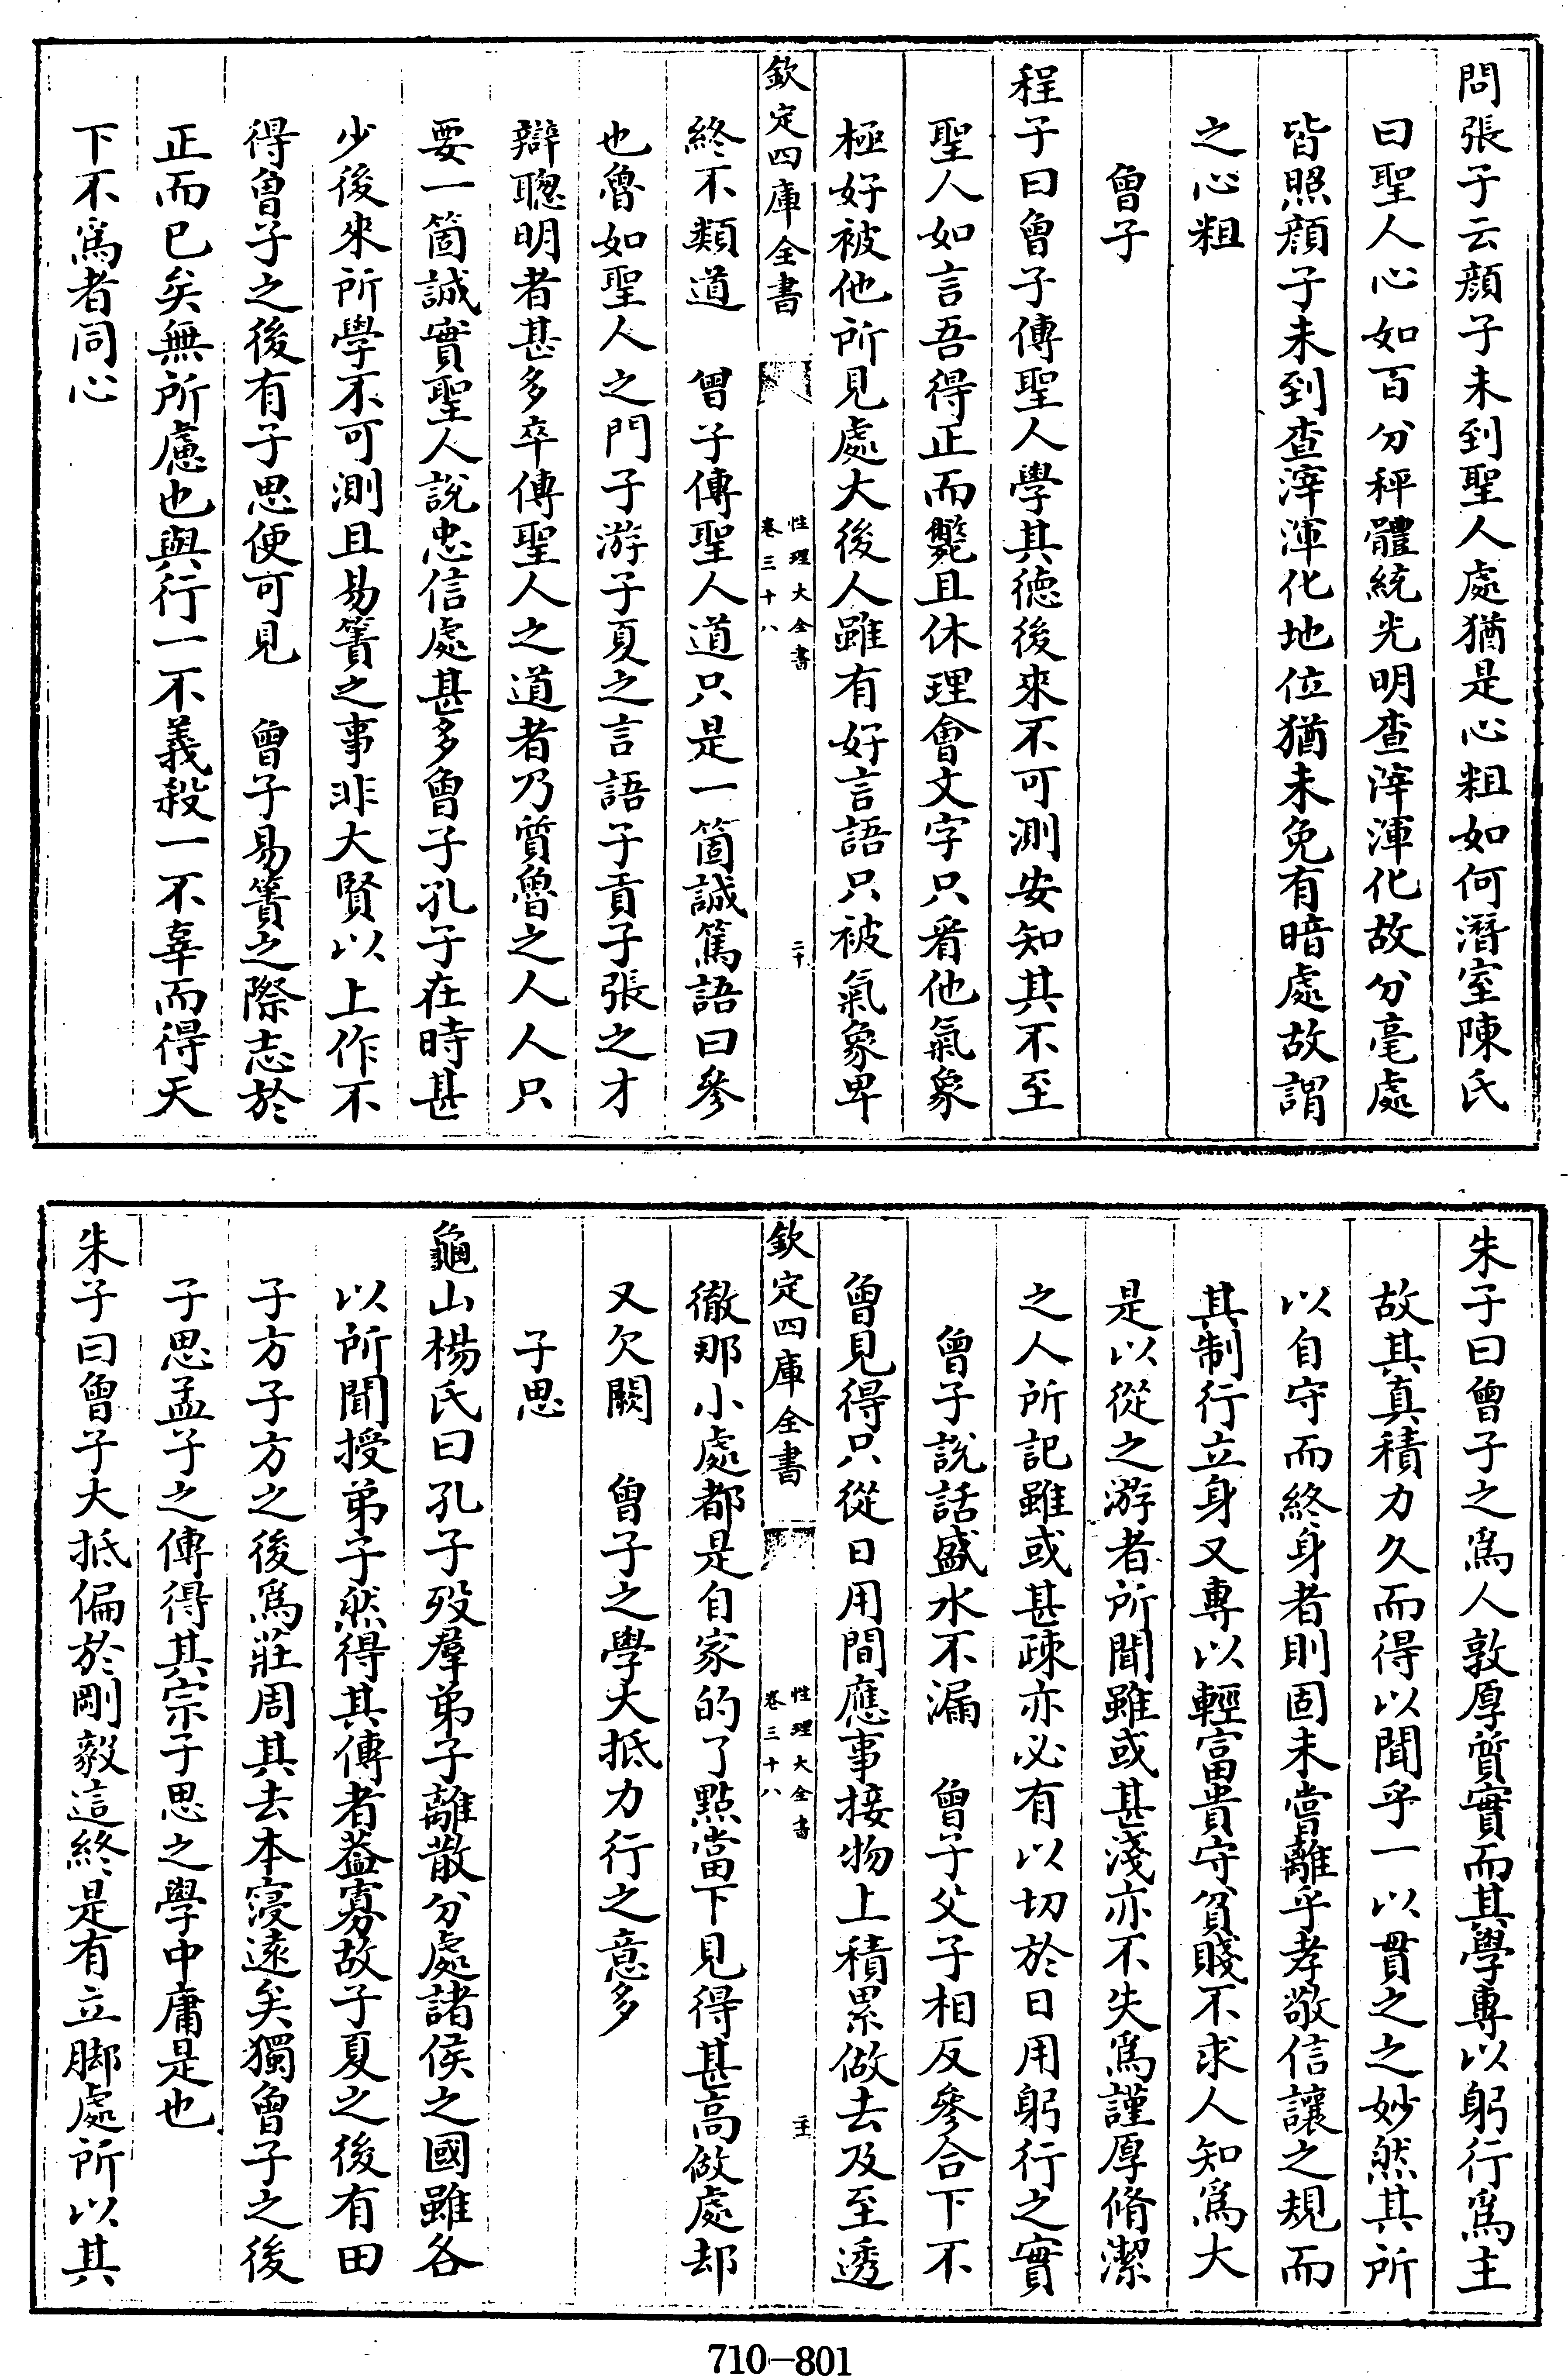 問張子云顔子未到聖人處猶是心粗如何潛室陳氏
曰聖人心如百分秤體統光明查滓渾化故分毫處
皆照顔子未到查滓渾化地位猶未免有暗處故謂
之心粗
曾子
程子曰曾子傳聖人學其德後來不可測安知其不至
聖人如言吾得正而斃且休理會文字只看他氣象
極好被他所見處大後人雖有好言語只被氣象卑
欽定四庫全書
性理大全書
卷三十八
二十
終不類道　曾子傳聖人道只是一箇誠篤語曰參
也魯如聖人之門子游子夏之言語子貢子張之才
辯聰明者甚多卒傳聖人之道者乃質魯之人人只
要一箇誠實聖人說忠信處甚多曾子孔子在時甚
少後來所學不可測且易簀之事非大賢以上作不
得曾子之後有子思便可見　曾子易簀之際志於
正而已矣無所慮也與行一不義殺一不辜而得天
下不爲者同心
朱子曰曾子之爲人敦厚質實而其學專以躬行爲主
故其真積力久而得以聞乎一以貫之之妙然其所
以自守而終身者則固未嘗離乎孝敬信讓之規而
其制行立身又專以輕富貴守貧賤不求人知爲大
是以從之游者所聞雖或甚淺亦不失爲謹厚脩潔
之人所記雖或甚疎亦必有以切於日用躬行之實
曾子說話盛水不漏　曾子父子相反參合下不
曾見得只從日用間應事接物上積累做去及至透
欽定四庫全書
性理大全書
卷三十八
二十一
徹那小處都是自家的了點當下見得甚高做處却
又欠闕　曾子之學大抵力行之意多
子思
龜山楊氏曰孔子歿羣弟子離散分處諸侯之國雖各
以所聞授弟子然得其傳者蓋寡故子夏之後有田
子方子方之後爲莊周其去本寖遠矣獨曾子之後
子思孟子之傳得其宗子思之學中庸是也
朱子曰曾子大抵偏於剛毅這終是有立脚處所以其
710-801